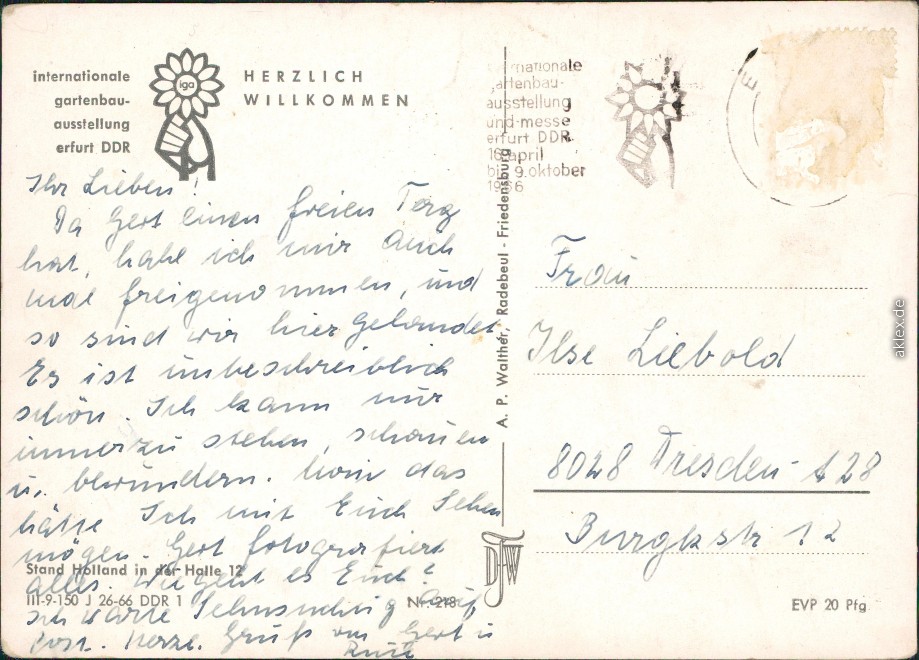 internationale
gartenbau-
ausstellung
erfurt DDR
iga
HERZLICH
WILLKOMMEN
Ihr Lieben!
Da Gert einen freien Tag
hat, habe ich mir auch
mal freigenommen, und
so sind wir hier gelandet
Es ist unbeschreiblich
schön. Ich kann nur
immerzu stehen, schauen
u. bewundern. das
hätte Ich mit Euch Sehen
mögen. Gert fotografiert
alles. Wie geht es Euch?
Ich warte Sehnsüchtig auf
Post. Herzl. Gruß von Gert u
Ruth
Stand Holland in der Halle 12
III-9-150 J 26-66 DDR 1
Nr. 218
A. P. Walther, Radebeul - Friedensburg
DFW
nationale
gartenbau-
ausstellung
und messe
erfurt DDR
april
bis 9. oktober
1966
E
Frau
Ilse Liebold
8028 Dresden A 28
Burgkstr 12
EVP 20 Pfg.
aklex.de